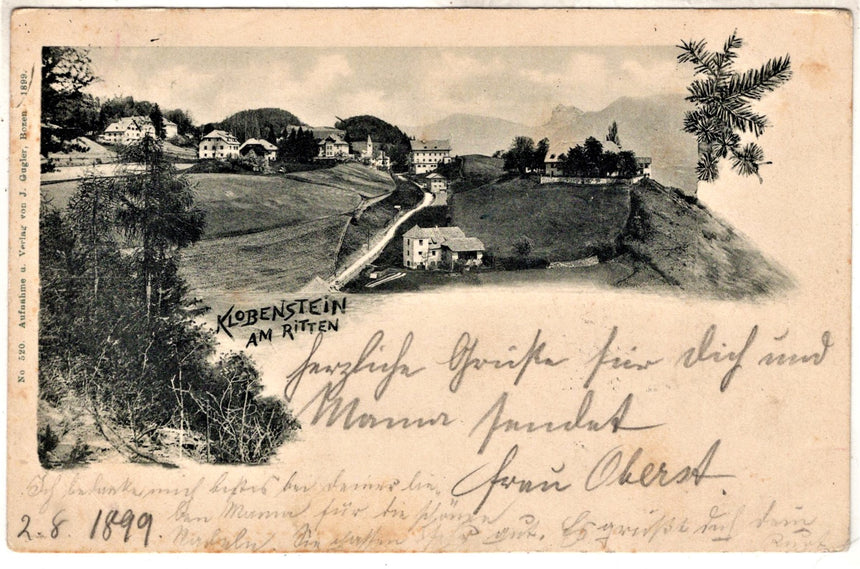 No 520. Aufnahme u. Verlag von J. Gugler, Bozen 1899.
KLOBENSTEIN
AM RITTEN
herzliche Grüße für Dich und
Mama sendet
Frau Oberst
Ich bedanke mich bestens bei deiner lie-
ben Mama für die schöne
Sie gut. Es grüßt dich dein
Kurt
2.8. 1899